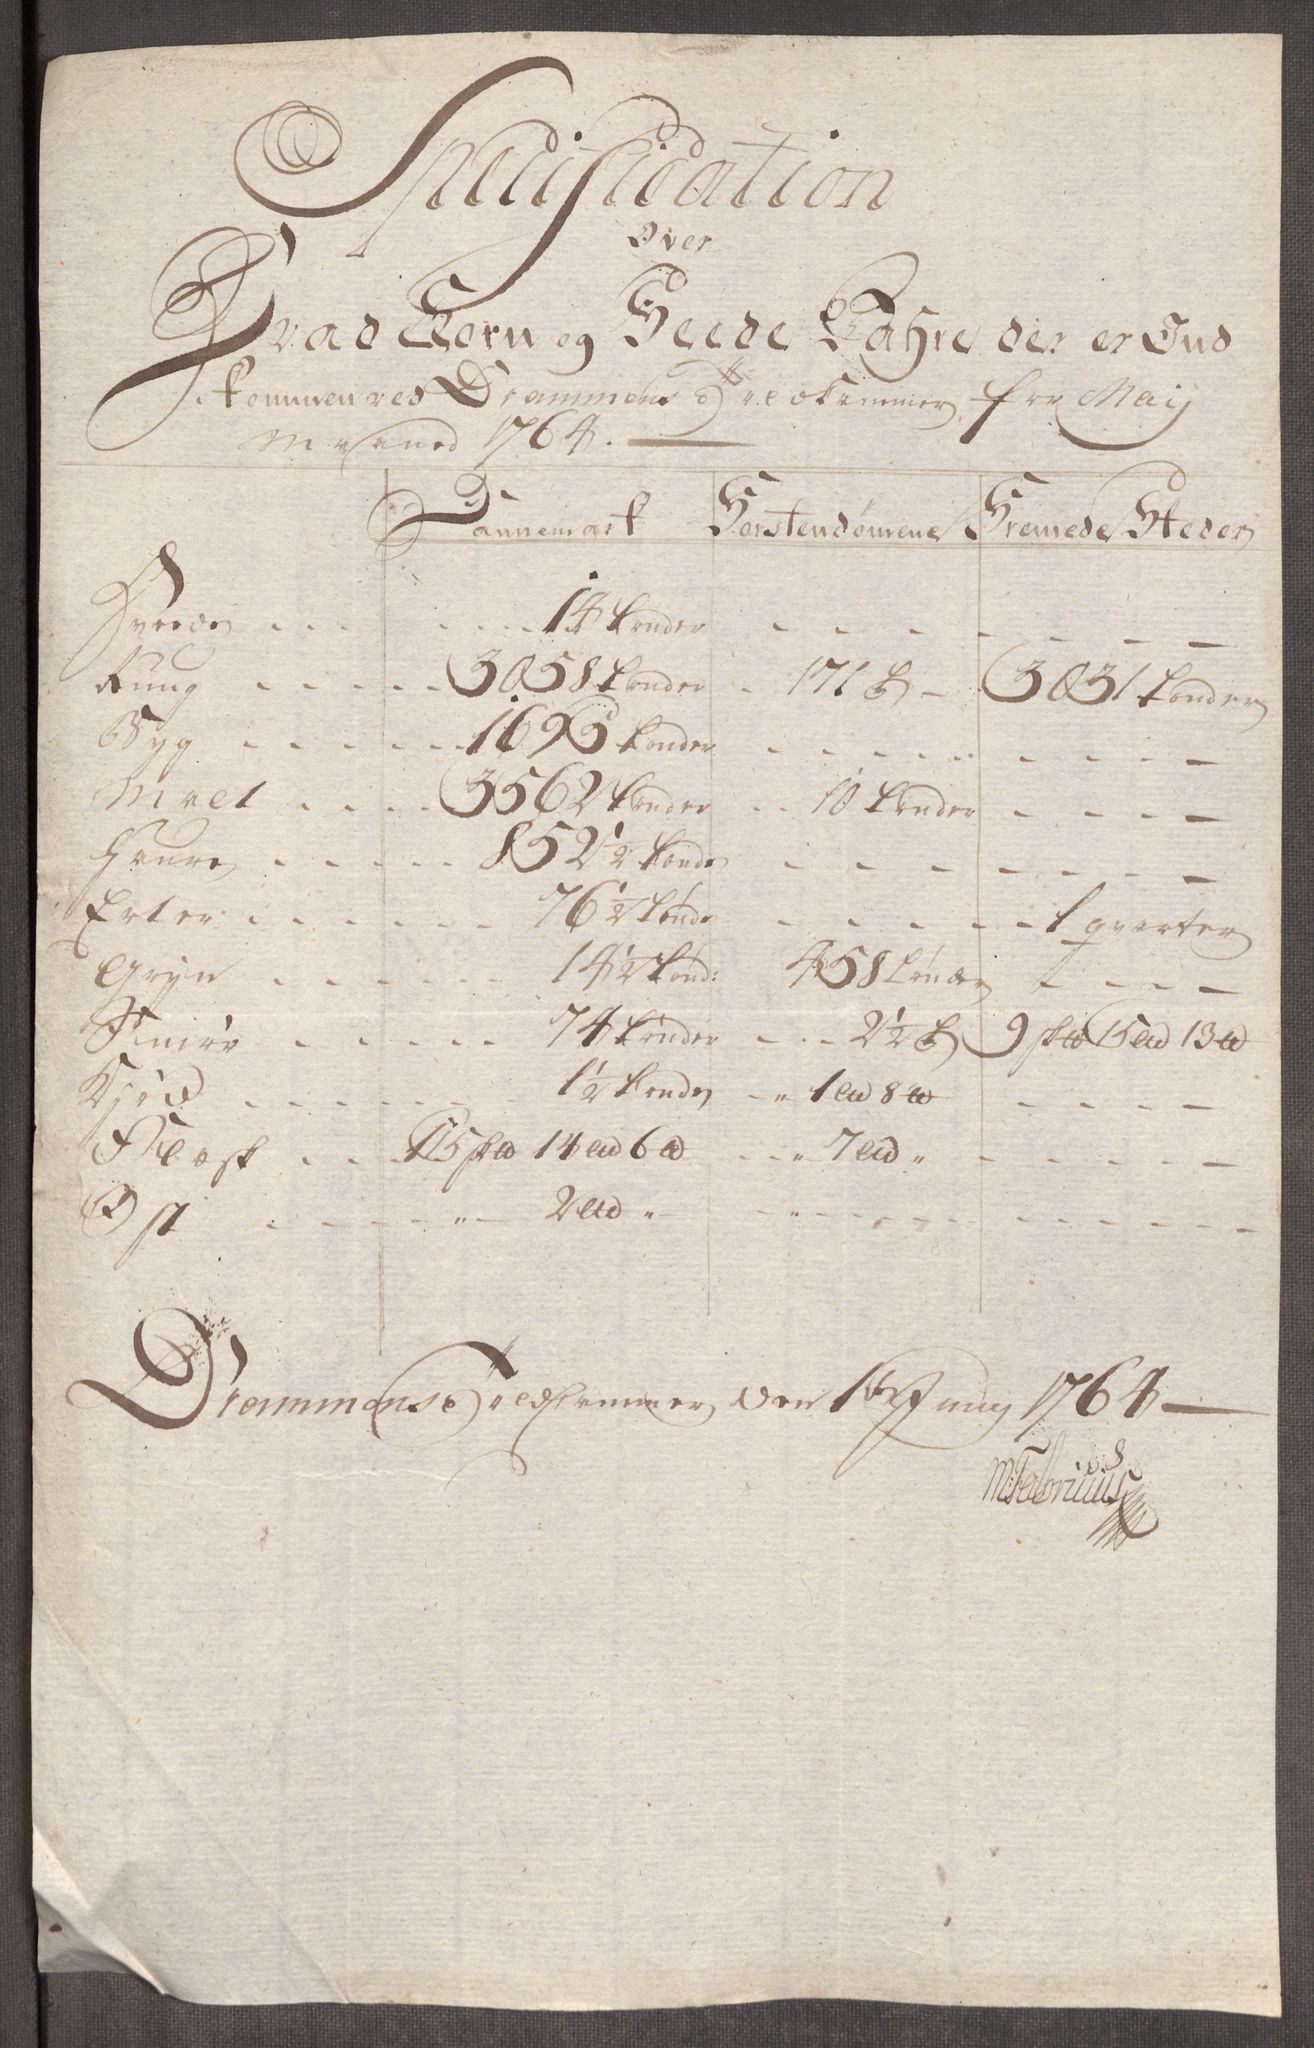 Specification
over
Hvad Korn og Feede Vahre der er Ind
kommen ved Drammens Toldkammer fra Maij
Maaned 1764.
Dannemark Førstendømene Fremede Steder
Hvede 14 tønder
Rung 3058 tønder 171 t 3031 tønder
Byg 1695 tønder
Malt 3562 tønder 10 tønder
Haure 852½ tønde
Erter 76½ tønde 1 qvarter
Gryn 14½ tønd: 458 tønder
Smørr 74 tønder 2½ t 9 sk℔ 15 L℔ 13 ℔
Kjød 1½ tønder " 1 L℔ 8 ℔
Flesk 15 sk℔ 14 L℔ 6 ℔ " 7 L℔ "
Ost " 2 L℔ " "
Drammens Toldkammer den 1ste Juny 1764
M: Fabricius